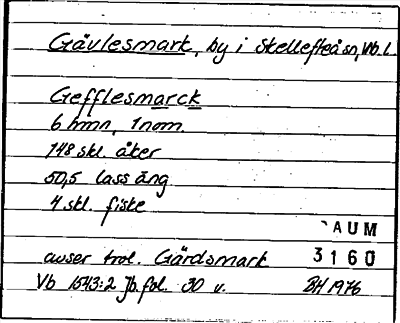 Gävlesmark, by i Skellefteå sn, Vb. l.
Gefflesmarck
6 hmn, 1 nom.
148 skl. åker
50,5 lass äng
4 skl. fiske
AUM
avser trol. Gärdsmark 3160
Vb 1543:2 Jb. fol. 30 v. BH 1976